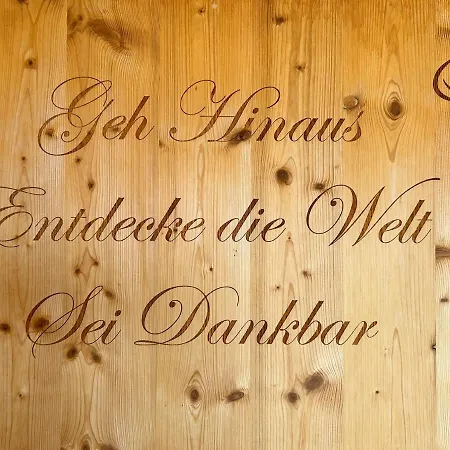 Geh Hinaus
Entdecke die Welt
Sei Dankbar